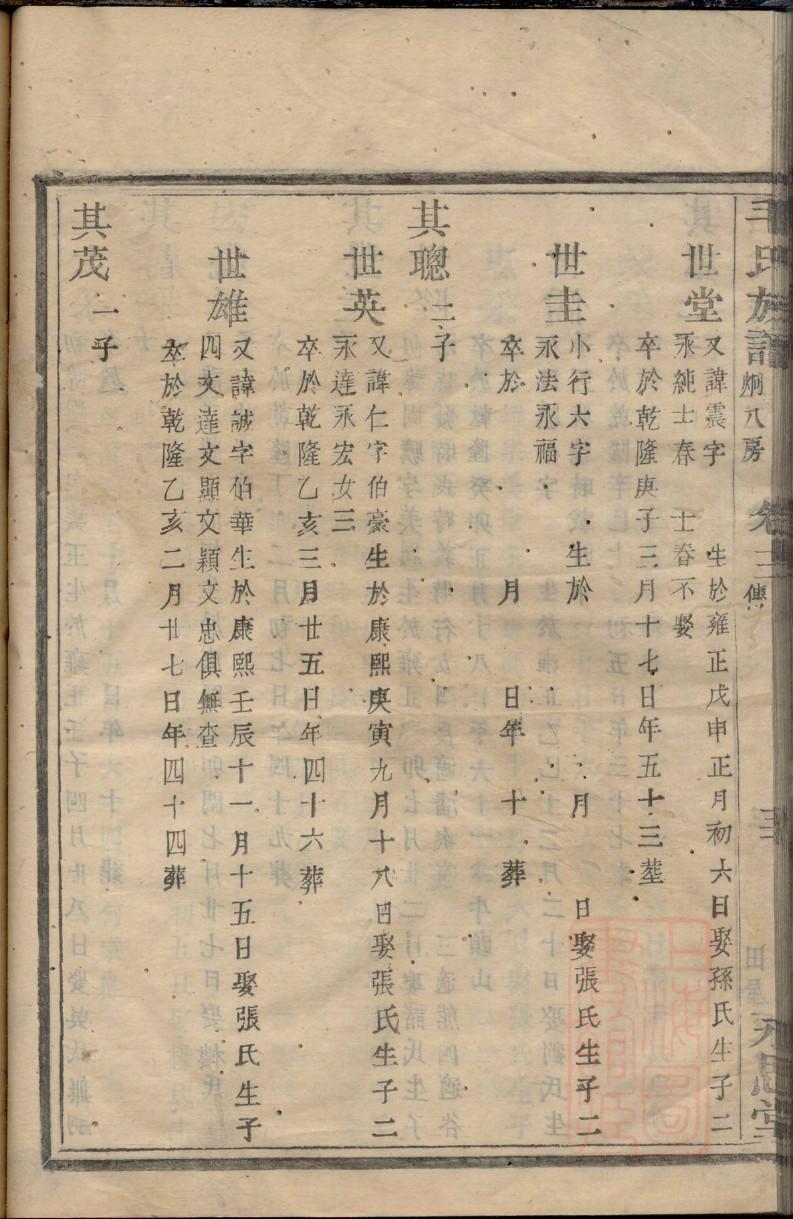 毛氏族譜 炯八房 卷三 傳 永思堂
世堂 又諱震字 生於雍正戊申正月初六日娶孫氏生子二
永純士春 士春不娶
卒於乾隆庚子三月十七日年五十三塟
世圭 小行六字 生於 月 日娶張氏生子二
永法永福
卒於 月 日年 十 葬
其聰 二子
世英 又諱仁字伯豪生於康熙庚寅九月十八日娶張氏生子二
永達永宏女三
卒於乾隆乙亥三月廿五日年四十六葬
世雄 又諱誠字伯華生於康熙壬辰十一月十五日娶張氏生子
四文達文顯文穎文忠俱無查
卒於乾隆乙亥二月廿七日年四十四葬
其茂 一子